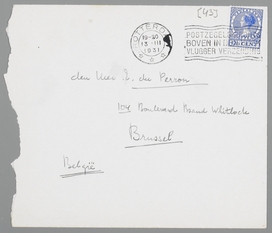 [43]
ROTTERDAM
19-20
13 III
1931
POSTZEGEL
BOVEN IN DE
VLUGGER VERZ
12½ CENT
den Heer E. du Perron
104 Boulevard Brand Whitlock
Brussel
België